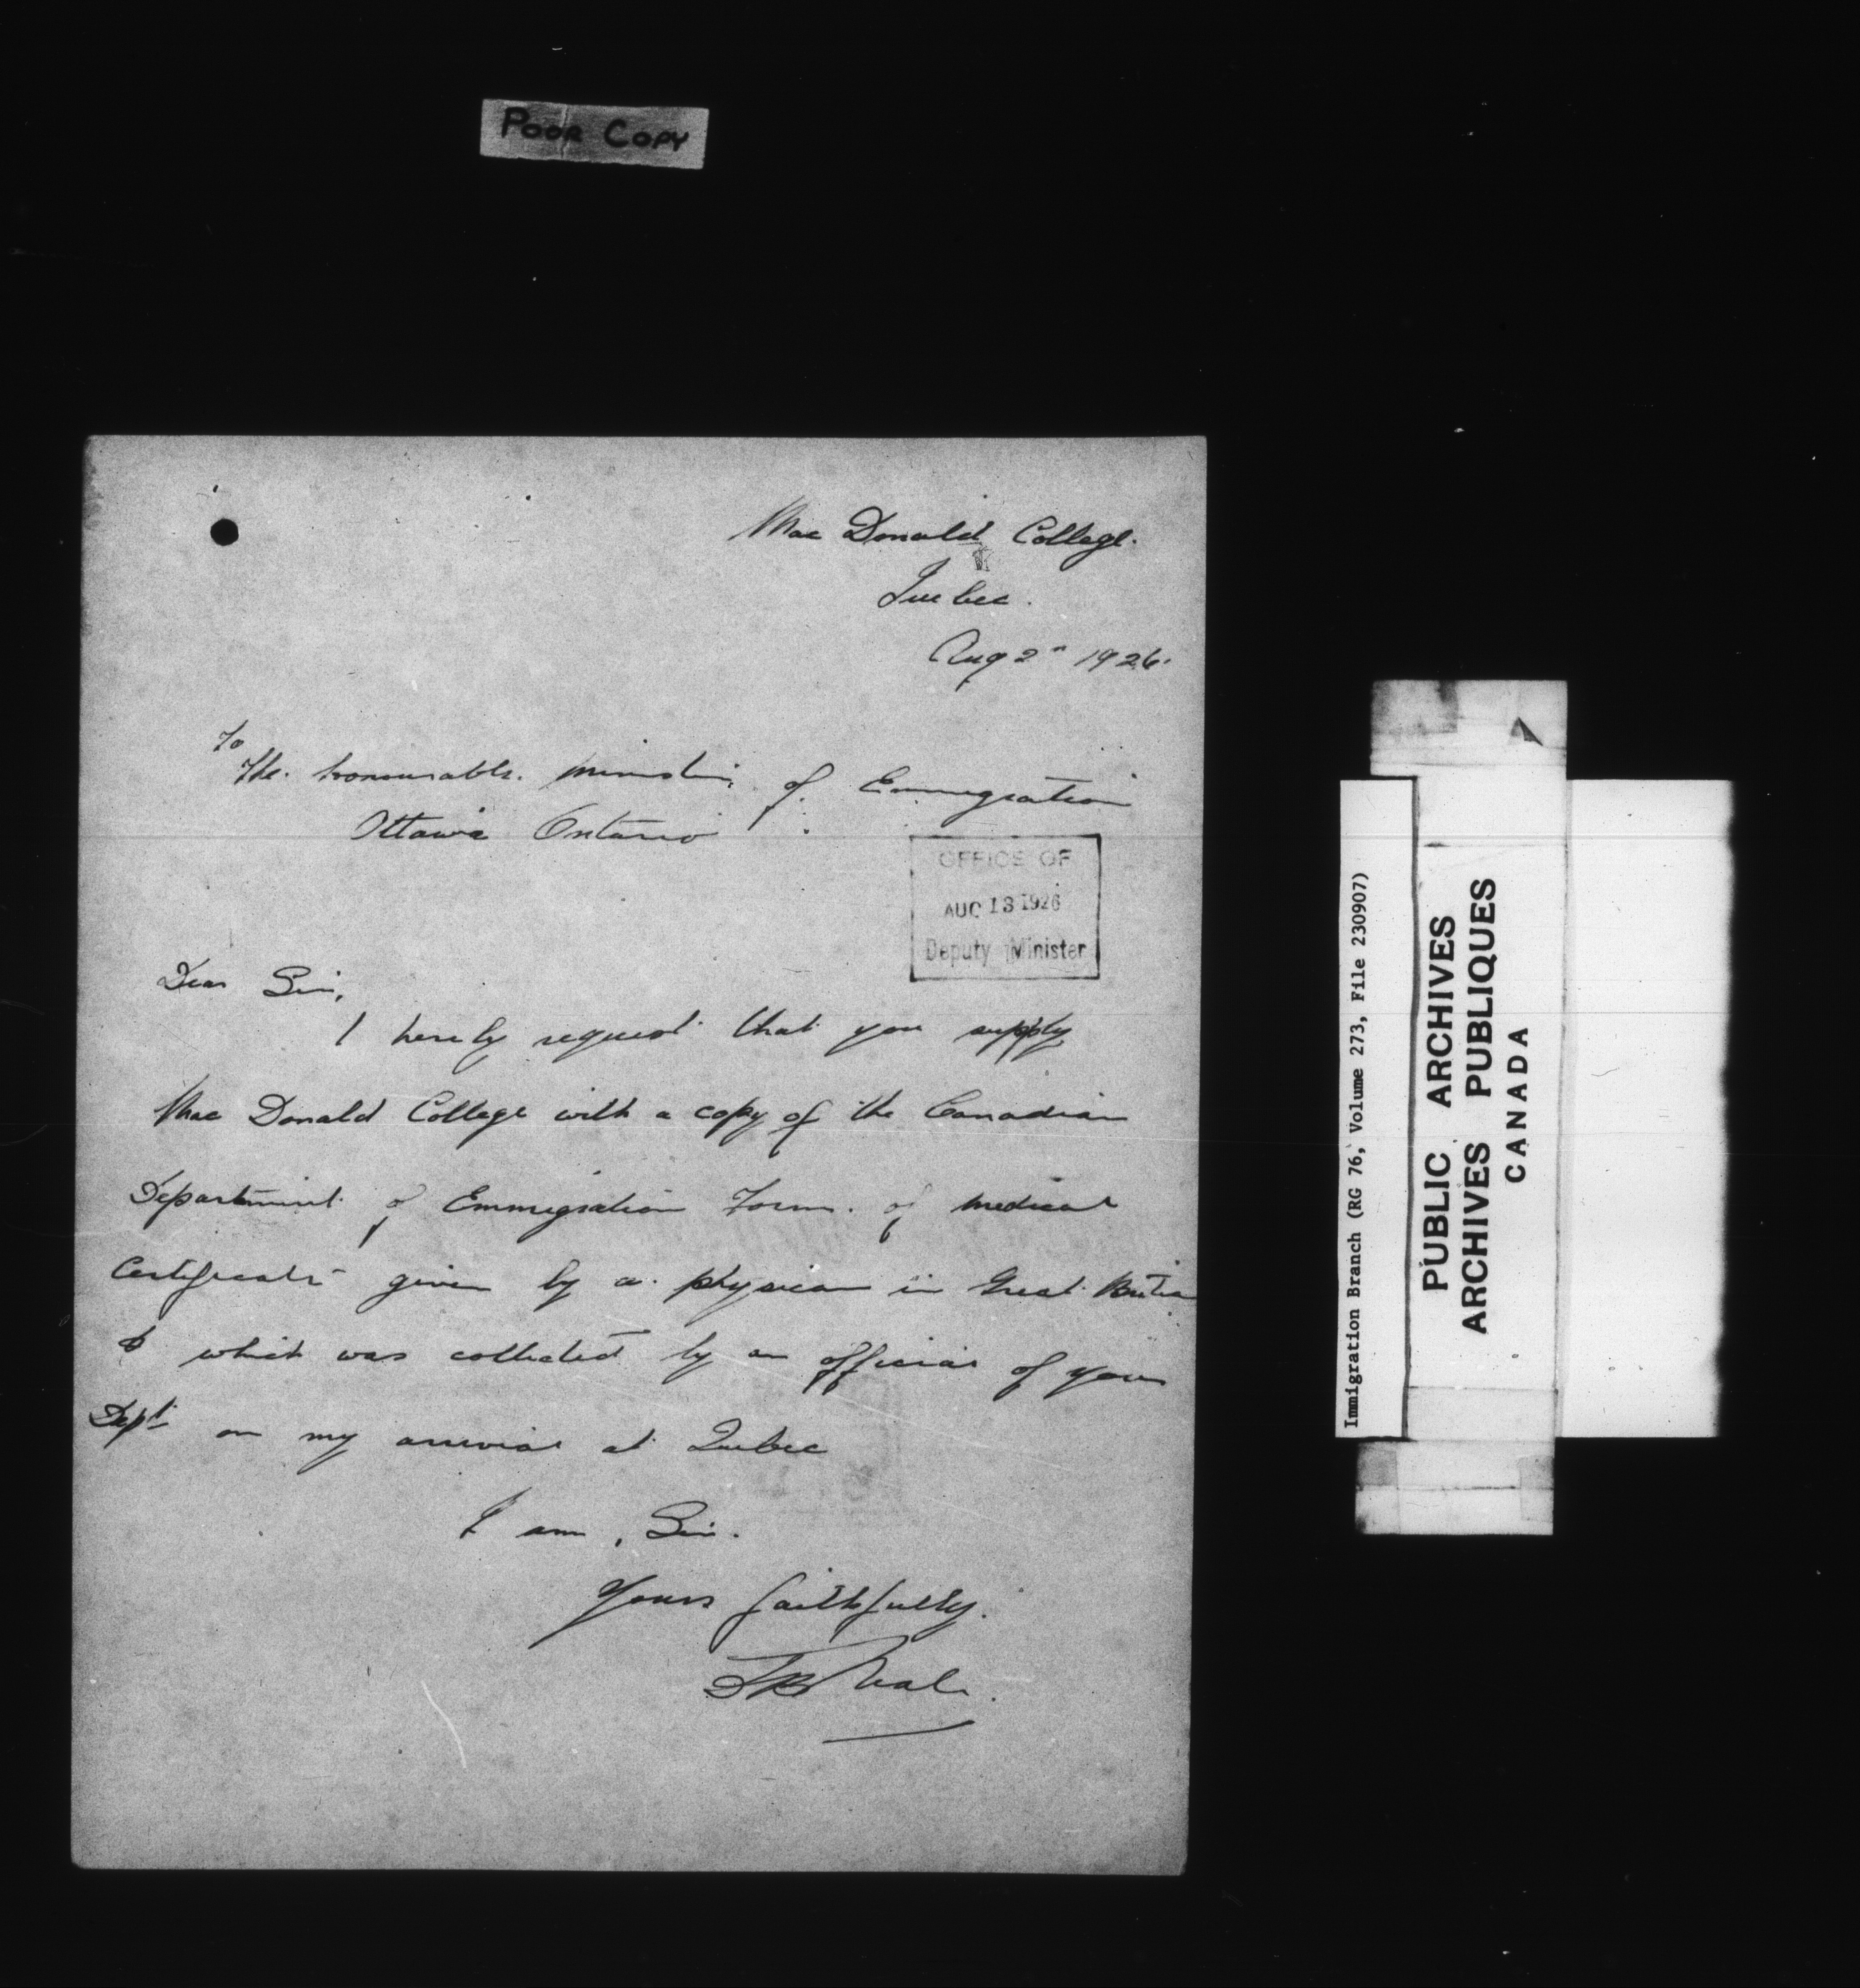 POOR COPY
Mac Donald College.
Quebec.
Aug 2" 1926.
To
The honourable. minister of Emmigration
Ottawa Ontario
OFFICE OF
AUG 13 1926
Deputy Minister
Dear Sir,
I hereby request that you supply
Mac Donald College with a copy of the Canadian
Department of Emmigration Form. of medical
Certificate given by a physican in Great Britian
& which was collected by an official of your
Dept on my arrival at Quebec
I am, Sir.
Yours faithfully.
Neale.
Immigration Branch (RG 76, Volume 273, File 230907)
PUBLIC ARCHIVES
ARCHIVES PUBLIQUES
CANADA